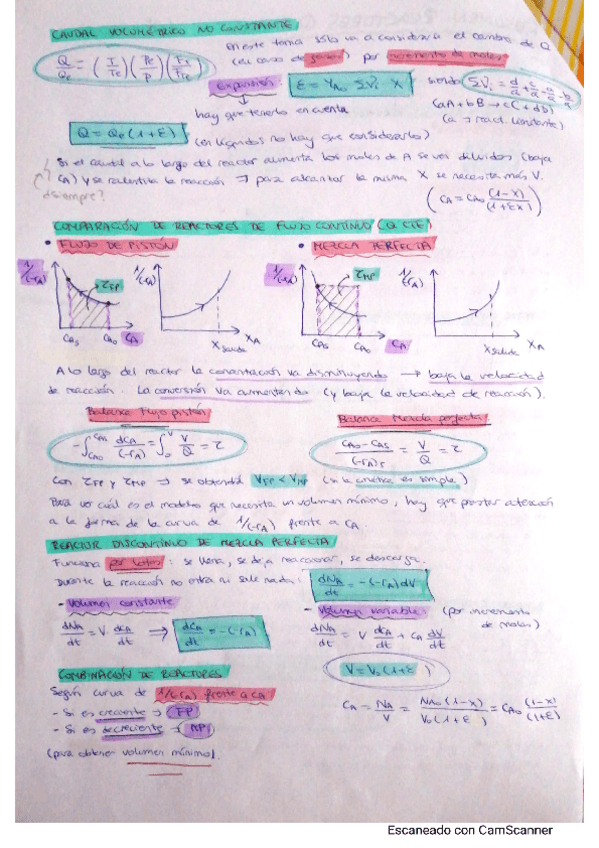 CAUDAL VOLUMÉTRICO NO CONSTANTE
En este tema sólo va a considerar el cambio de Q
Q/Qe = (T/Te)(Pe/P)(FT/FTe) (en caso de gases) por incremento de moles
Expansión ε = yA0 Σνi X siendo Σνi = d/a + c/a - a/a - b/a
hay que tenerlo en cuenta (aA + bB → cC + dD)
Q = Qe(1+ε) (en líquidos no hay que considerarlo) (a → react. limitante)
Si el caudal a lo largo del reactor aumenta los moles de A se ven diluidos (baja
CA) y se ralentiza la reacción → para alcanzar la misma X se necesita más V.
¿siempre? (CA = CA0 (1-X)/(1+εX))
COMPARACIÓN DE REACTORES DE FLUJO CONTINUO (Q CTE)
• FLUJO DE PISTÓN • MEZCLA PERFECTA
1/(-rA) τFP 1/(-rA) 1/(-rA) τMP 1/(-rA)
CAS CA0 CA Xsalida XA CAS CA0 CA Xsalida XA
A lo largo del reactor la concentración va disminuyendo → baja la velocidad
de reacción. La conversión va aumentando (y baja la velocidad de reacción).
Balance Flujo pistón Balance Mezcla perfecta
-∫CA0 CAS dCA/(-rA) = ∫0 V V/Q = τ (CA0 - CAS)/(-rA)s = V/Q = τ
Con τFP y τMP → se obtendrá VFP < VMP (si la cinética es simple)
Para ver cuál es el modelo que necesita un volumen mínimo, hay que prestar atención
a la forma de la curva de 1/(-rA) frente a CA.
REACTOR DISCONTINUO DE MEZCLA PERFECTA
Funciona por lotes: se llena, se deja reaccionar, se descarga.
Durante la reacción no entra ni sale nada: dNA/dt = -(-rA)dV
- Volumen constante - Volumen variable (por incremento de moles)
dNA/dt = V · dCA/dt ⇒ dCA/dt = -(-rA) dNA/dt = V dCA/dt + CA dV/dt
COMBINACIÓN DE REACTORES V = V0(1+ε)
Según curva de 1/(-rA) frente a CA
- Si es creciente → FP CA = NA/V = NA0(1-X)/V0(1+ε) = CA0 (1-X)/(1+ε)
- Si es decreciente → MP
(para obtener volumen mínimo).
Escaneado con CamScanner